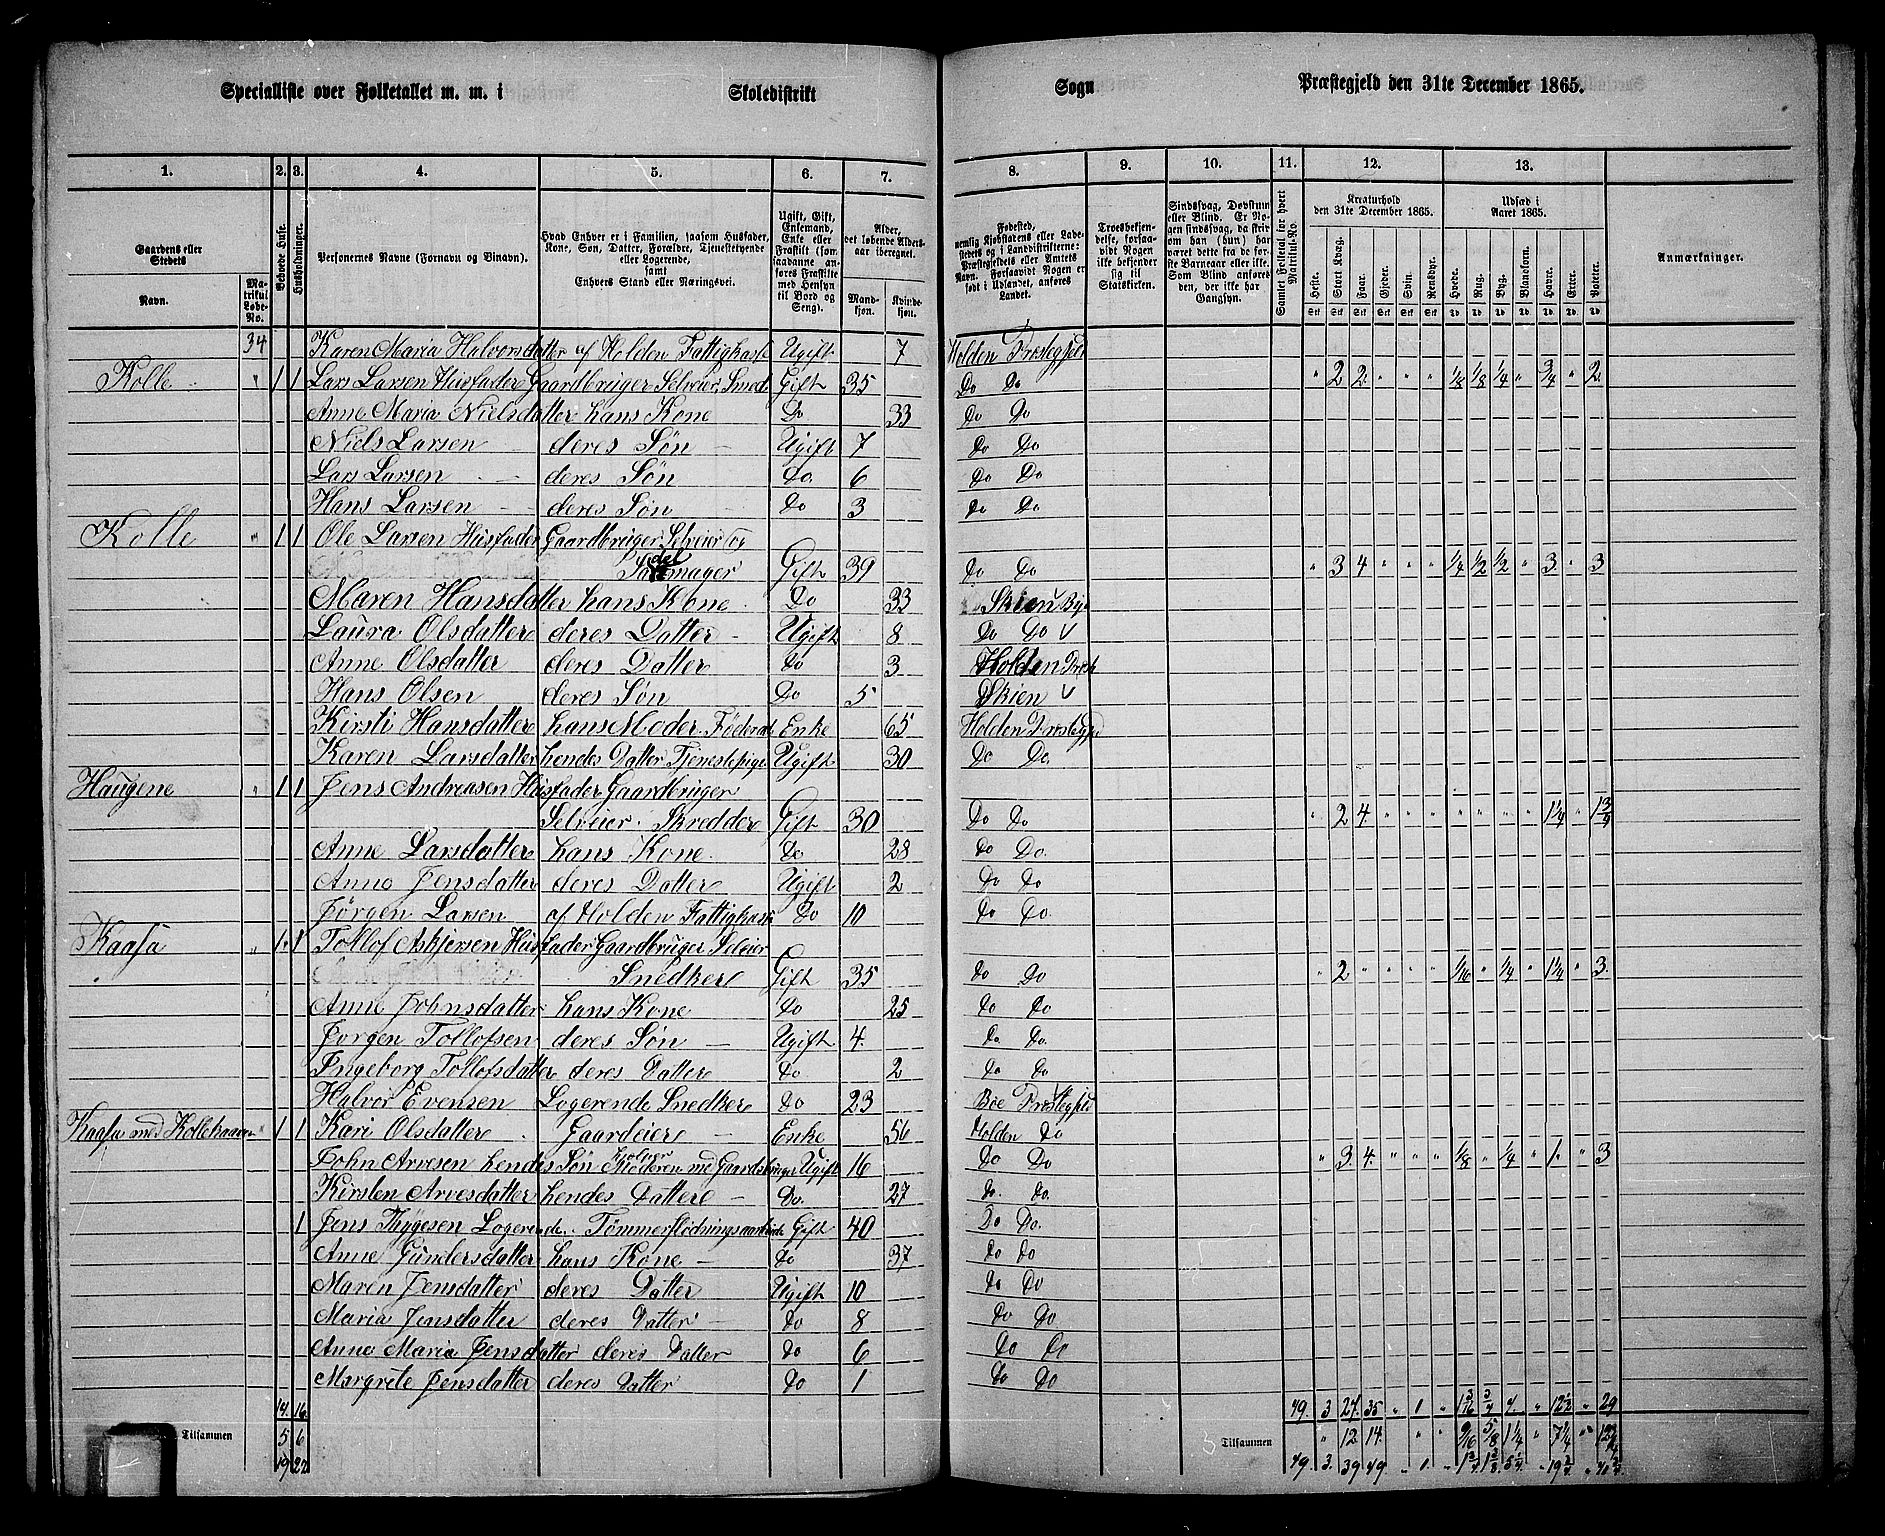 Specialliste over Folketallet m. m. i Skoledistrikt Sogn Præstegjeld den 31te December 1865.
1. 2. 3. 4. 5. 6. 7. 8. 9. 10. 11. 12. 13.
Gaardens eller Stedets
Navn.
Matrikul Løbe-No.
Beboede Huse.
Husholdninger.
Personernes Navne (Fornavn og Binavn).
Hvad Enhver er i Familien, saasom Husfader, Kone, Søn, Datter, Forældre, Tjenestetyende eller Logerende, samt Enhvers Stand eller Næringsvei.
Ugift, Gift, Enkemand, Enke eller Fraskilt (som saadanne anføres Fraskilte med Hensyn til Bord og Seng).
Alder, det løbende Aldersaar iberegnet.
Mandkjøn.
Kvindekjøn.
Fødested, nemlig Kjøbstadens eller Ladestedets og i Landdistrikterne: Præstegjeldets eller Amtets Navn. Forsaavidt Nogen er født i Udlandet, anføres Landet.
Troesbekjendelse, forsaavidt Nogen ikke bekjender sig til Statskirken.
Sindssvag, Døvstum eller Blind. Er Nogen sindssvag, da skriv om han (hun) har været dette fra de første Barneaar eller ikke. Som Blind anføres den, der ikke har Gangsyn.
Samlet Folketal for hvert Matrikul-No.
Kreaturhold den 31te December 1865.
Heste. Stort Kvæg. Faar. Gjeder. Svin. Rensdyr.
Udsæd i Aaret 1865.
Hvede. Rug. Byg. Blandkorn. Havre. Erter. Poteter.
Anmærkninger.
34 Karen Maria Halvorsdatter af Holden Fattigkasse Ugift 7 Holden Prestegjeld
Kolle " 1 1 Lars Larsen Husfader Gaardbruger Selveier, Smed Gift 35 Do Do " 2 2 " " " 1/8 1/8 1/4 " 3/4 " 2
Anne Maria Nielsdatter hans Kone Do 33 Do Do
Niels Larsen deres Søn Ugift 7 Do Do
Lars Larsen deres Søn Do 6 Do Do
Hans Larsen deres Søn Do 3 Do Do
Kolle " 1 1 Ole Larsen Husfader Gaardbruger Selveier og
Sadelmager Gift 39 Do Do " 3 4 " " " 1/4 1/2 1/2 " 3 " 3
Maren Hansdatter hans Kone Do 33 Skien By
Laura Olsdatter deres Datter Ugift 8 Do Do
Anne Olsdatter deres Datter Do 3 Holden Prest
Hans Olsen deres Søn Do 5 Skien
Kirsti Hansdatter hans Moder. Føderaad Enke 65 Holden Prestegjeld
Karen Larsdatter hendes Datter Tjenestepige Ugift 30 Do Do
Haugene " 1 1 Jens Andreasen Husfader Gaardbruger
Selveier. Skredder Gift 30 Do Do " 2 4 " " " " " " " 1 1/4 " 1 3/4
Anne Larsdatter hans Kone Do 28 Do Do
Anne Jensdatter deres Datter Ugift 2 Do Do
Jørgen Larsen af Holden Fattigkasse Do 10 Do Do
Kaasa " 1 1 Tollof Askjersen Husfader Gaardbruger Selveier
Snedker Gift 35 Do Do " 2 " " " " 1/16 " 1/4 " 1 1/4 " 3
Anne Johnsdatter hans Kone Do 25 Do Do
Jørgen Tollofsen deres Søn Ugift 4 Do Do
Ingeborg Tollofsdatter deres Datter Do 2 Do Do
Halvor Evensen Logerende Snedker Do 23 Bøe Prestegjeld
Kaasa med Kollehaugen " 1 1 Kari Olsdatter Gaardeier Enke 56 Holden Do
John Arvesen hendes Søn hjelper Moderen med Gaardsbruget Ugift 16 Do Do " 3 4 " " " 1/8 " 1/4 " 1 " 3
Kirsten Arvesdatter hendes Datter Do 27 Do Do
1 Jens Thygesen Logerende. Tømmerflødningsarbeide Gift 40 Do Do
Anne Gundersdatter hans Kone Do 37 Do Do
Maren Jensdatter deres Datter Ugift 10 Do Do
Maria Jensdatter deres Datter Do 8 Do Do
Anne Maria Jensdatter deres Datter Do 6 Do Do
Margrete Jensdatter deres Datter Do 1 Do Do
14 16 49 3 27 35 " 1 " 1 3/16 3/4 4 " 12 1/2 " 29
Tilsammen 5 6 Tilsammen " 12 14 " " 9/16 5/8 1 1/4 " 7 1/4 "
19 22 49 3 39 49 " 1 "